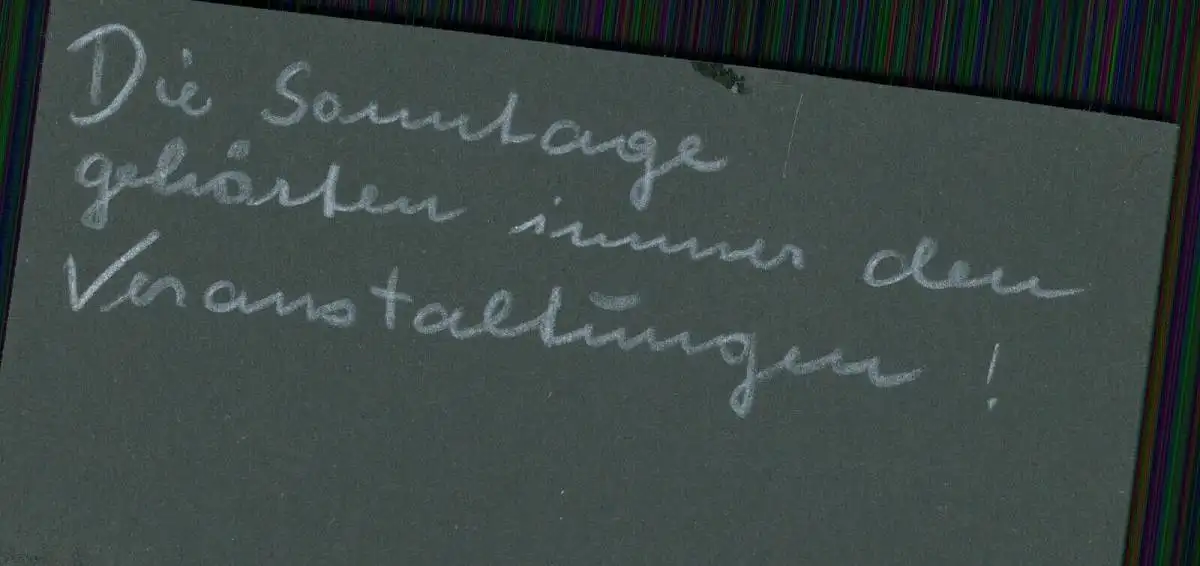 Die Sonntage
gehörten immer den
Veranstaltungen !